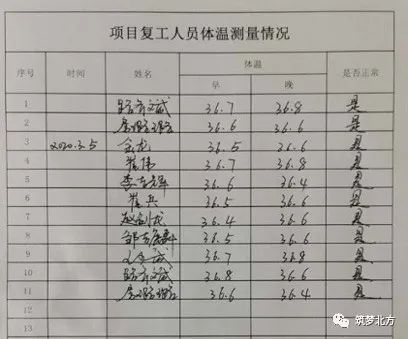 项目复工人员体温测量情况
序号 时间 姓名 体温 是否正常
早 晚
1 36.7 36.8 是
2 36.6 36.6 是
3 2020.3.5 金龙 36.5 26.6 是
4 崔伟 36.7 36.8 是
5 36.6 36.4 是
6 崔兵 36.5 36.6 是
7 36.4 36.6 是
8 36.5 36.6 是
9 36.7 36.8 是
10 36.8 36.6 是
11 36.6 36.4 是
12
13
筑梦北方